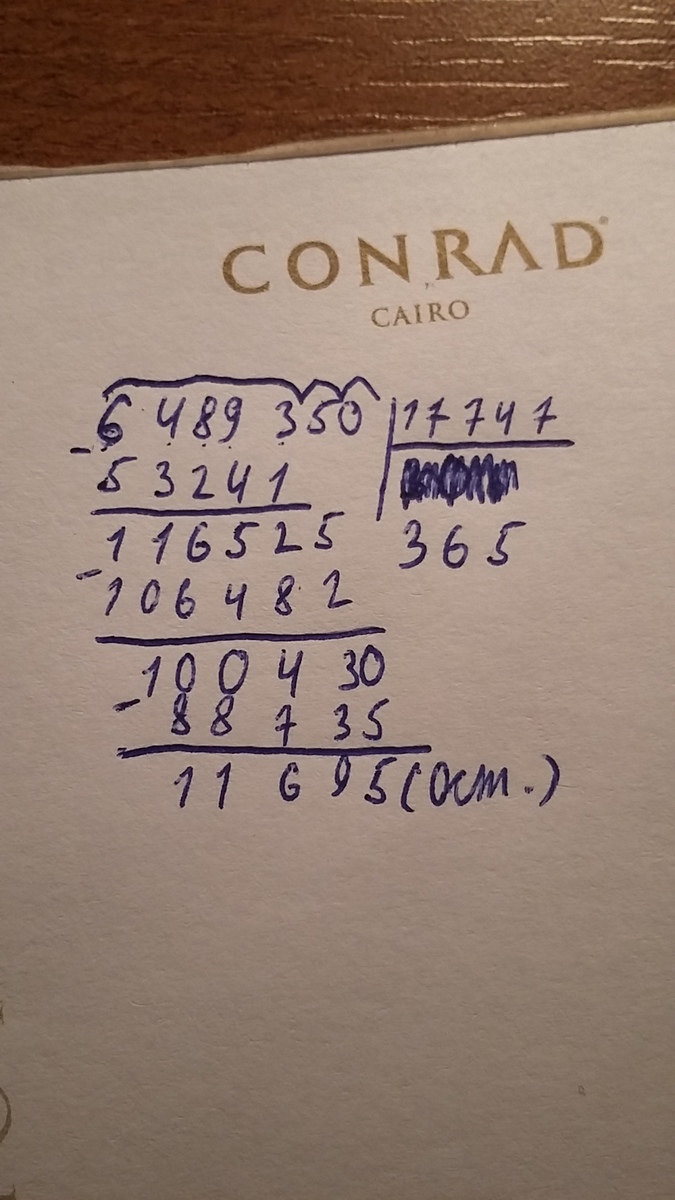 CONRAD
CAIRO
6489350 17747
- 53241
116525 365
- 106482
100430
- 88735
11695 (Ост.)